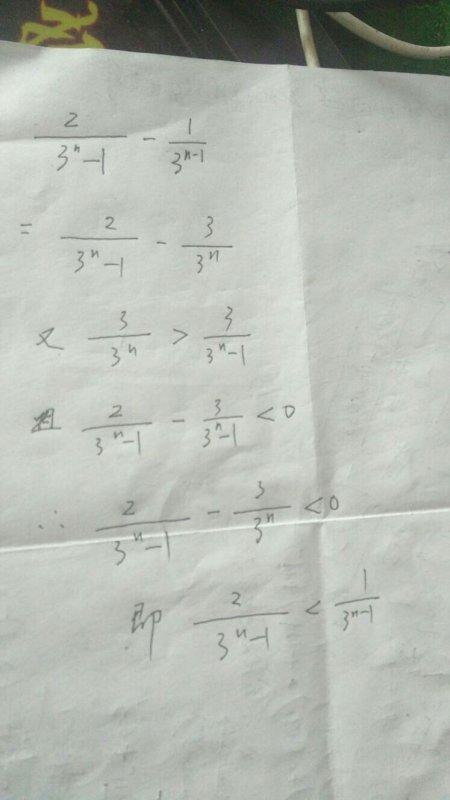 2/(3^n-1) - 1/3^(n-1)
= 2/(3^n-1) - 3/3^n
又 3/3^n > 3/(3^n-1)
且 2/(3^n-1) - 3/(3^n-1) < 0
∴ 2/(3^n-1) - 3/3^n < 0
即 2/(3^n-1) < 1/3^(n-1)